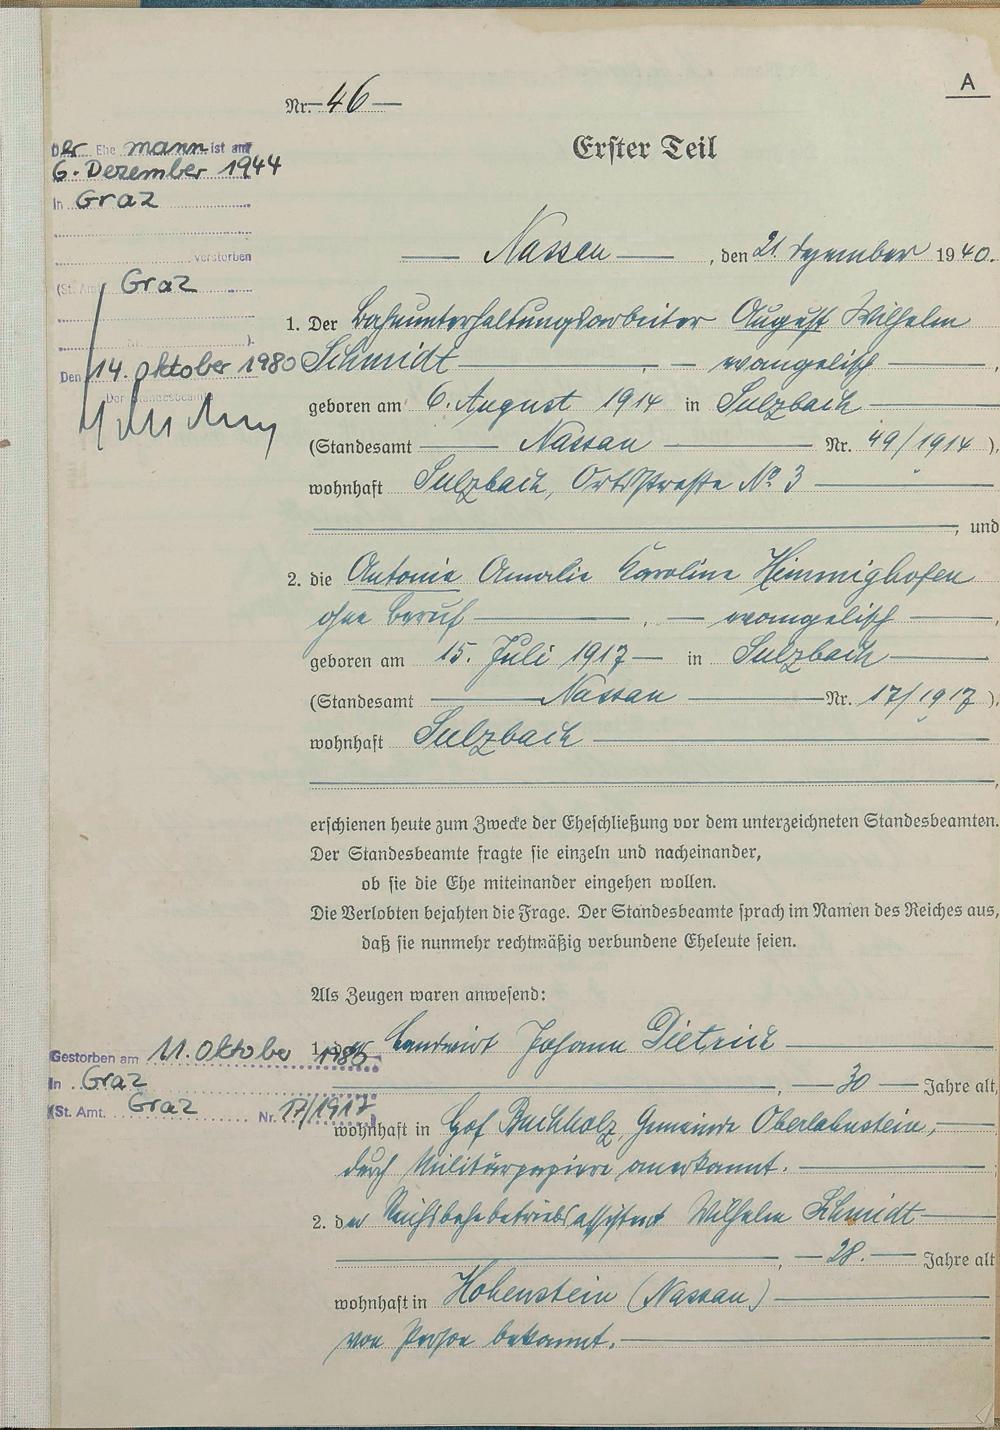 A
Nr. 46
Erster Teil
Der Ehe mann ist am
6. Dezember 1944
in Graz
verstorben
(St. Am Graz
Den 14. Oktober 1980
Der Standesbeam
Nassau, den 21. Dezember 1940.
1. Der Bahnunterhaltungsarbeiter August Wilhelm
Schmidt, evangelisch,
geboren am 6. August 1914 in Sulzbach
(Standesamt Nassau Nr. 49/1914),
wohnhaft Sulzbach, Ortsstraße No 3
, und
2. die Antonie Amalie Karoline Himmighofen
ohne Beruf, evangelisch,
geboren am 15. Juli 1917 in Sulzbach
(Standesamt Nassau Nr. 17/1917),
wohnhaft Sulzbach
erschienen heute zum Zwecke der Eheschließung vor dem unterzeichneten Standesbeamten.
Der Standesbeamte fragte sie einzeln und nacheinander,
ob sie die Ehe miteinander eingehen wollen.
Die Verlobten bejahten die Frage. Der Standesbeamte sprach im Namen des Reiches aus,
daß sie nunmehr rechtmäßig verbundene Eheleute seien.
Als Zeugen waren anwesend:
1. der Landwirt Johann Dietrich
, 30 Jahre alt,
wohnhaft in Hof Buchholz, Gemeinde Oberlahnstein,
durch Militärpapiere anerkannt.
Gestorben am 11. Oktober
in Graz
(St. Amt. Graz Nr. 17/1917)
2. der Reichsbahnbetriebsassistent Wilhelm Schmidt
, 28. Jahre alt
wohnhaft in Hohenstein (Nassau)
von Person bekannt.